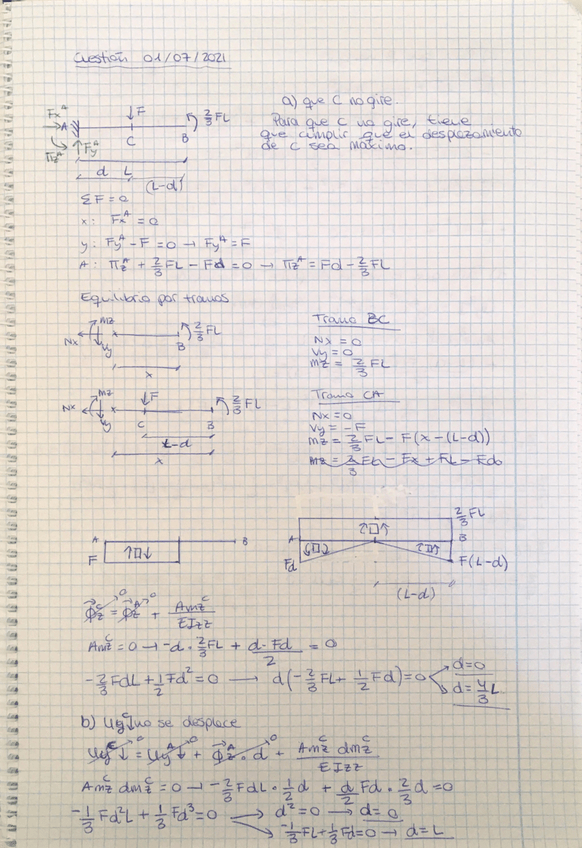 Cuestión 01/07/2021
a) que C no gire.
Para que C no gire, tiene
que cumplir que el desplazamiento
de C sea máximo.
Fx^A
A
F
2/3 FL
Fy^A
Mz^A
C
B
d
L
(L-d)
ΣF = 0
x: Fx^A = 0
y: Fy^A - F = 0 → Fy^A = F
A: Mz^A + 2/3 FL - Fd = 0 → Mz^A = Fd - 2/3 FL
Equilibrio por tramos
Nx
Mz
Vy
B
2/3 FL
x
Tramo BC
Nx = 0
Vy = 0
Mz = 2/3 FL
Nx
Mz
Vy
F
C
B
2/3 FL
L-d
x
Tramo CA
Nx = 0
Vy = -F
Mz = 2/3 FL - F(x - (L-d))
Mz = 2/3 FL - Fx + FL - Fd
A
B
F
A
B
2/3 FL
Fd
F(L-d)
(L-d)
ϕz^C = ϕz^A + Amz^C / EIzz
Amz^C = 0 → -d · 2/3 FL + d · Fd / 2 = 0
-2/3 FdL + 1/2 Fd² = 0 → d(-2/3 FL + 1/2 Fd) = 0
d = 0
d = 4/3 L
b) Uy^C ↓ no se desplace
Uy^C ↓ = Uy^A ↓ + ϕz^A · d + Amz^C dmz^C / EIzz
Amz^C dmz^C = 0 → -2/3 FdL · 1/2 d + d/2 Fd · 2/3 d = 0
-1/3 Fd²L + 1/3 Fd³ = 0 → d² = 0 → d = 0
-1/3 FL + 1/3 Fd = 0 → d = L